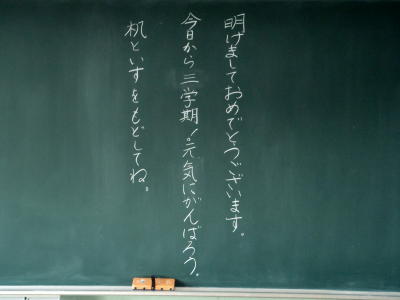 明けましておめでとうございます。
今日から三学期!。元気にがんばろう。
机といすをもどしてね。